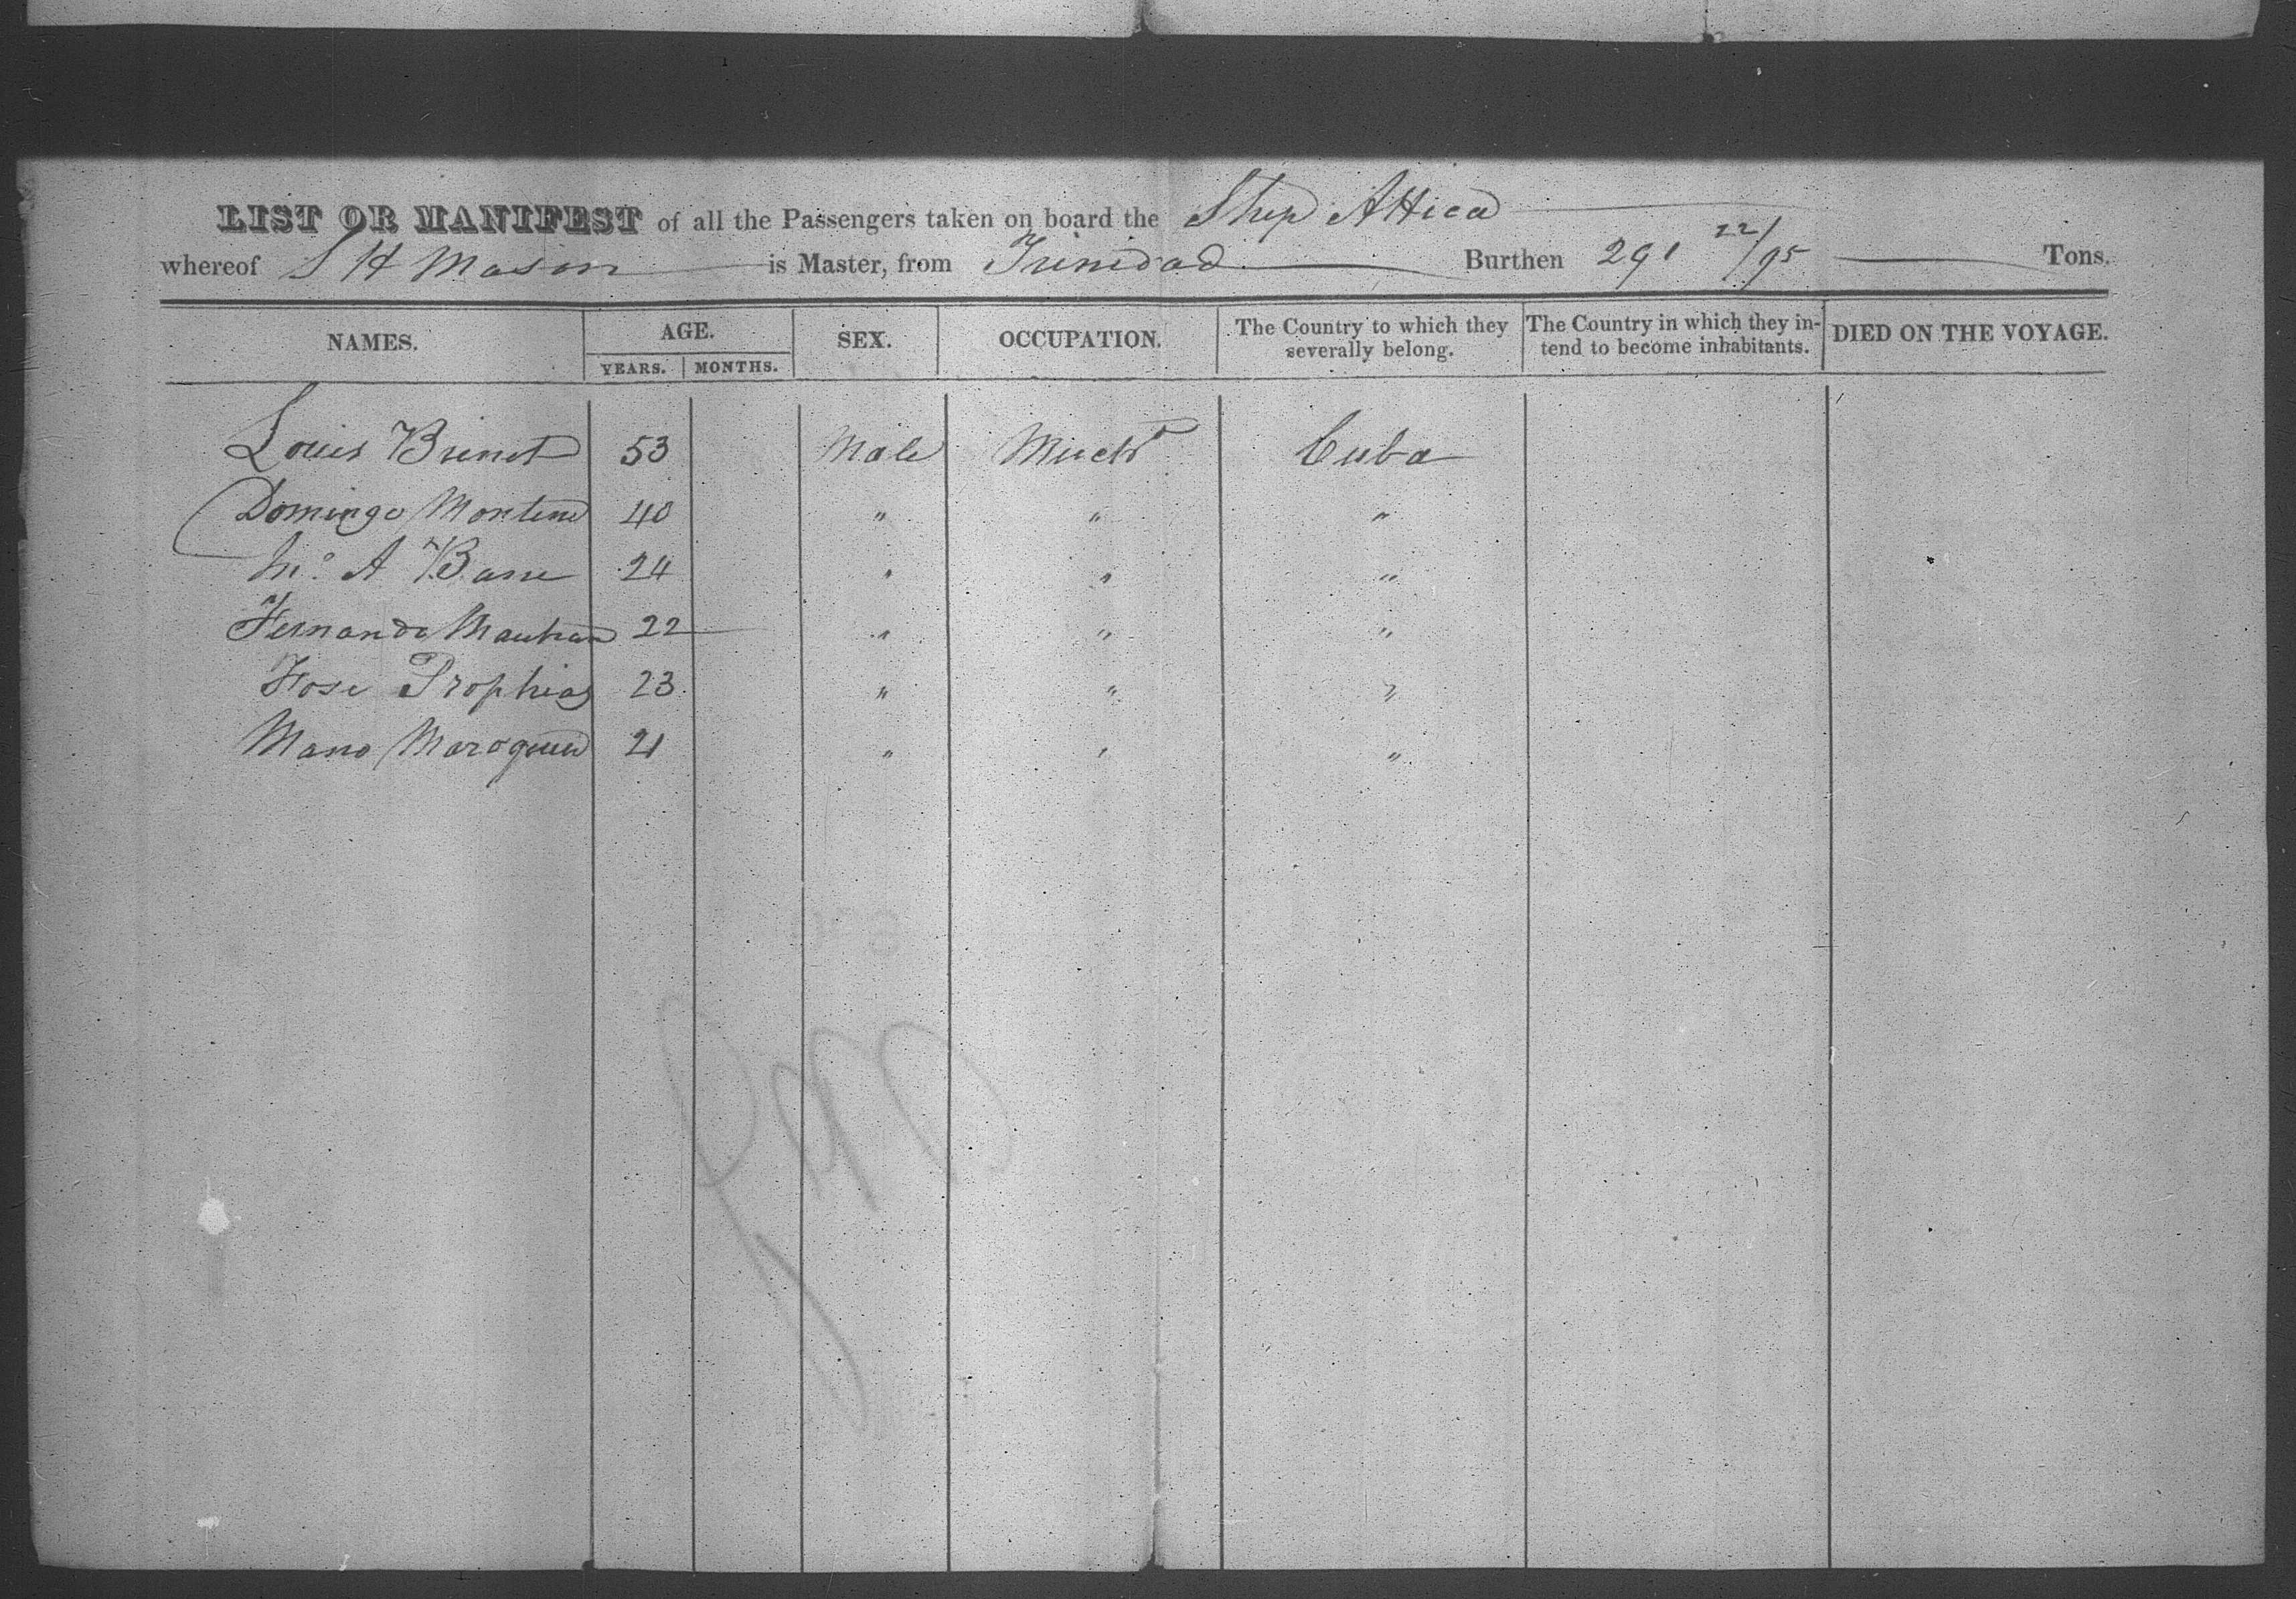 LIST OR MANIFEST of all the Passengers taken on board the Ship Attica
whereof S H Mason is Master, from Trinidad Burthen 291 22/95 Tons.
NAMES. AGE. SEX. OCCUPATION. The Country to which they severally belong. The Country in which they intend to become inhabitants. DIED ON THE VOYAGE.
YEARS. MONTHS.
Louis Brunet 53 Male Mercht Cuba
Domingo 40 " " "
A 24 " " "
Fernando 22 " " "
Jose Prophias 23 " " "
21 " " "